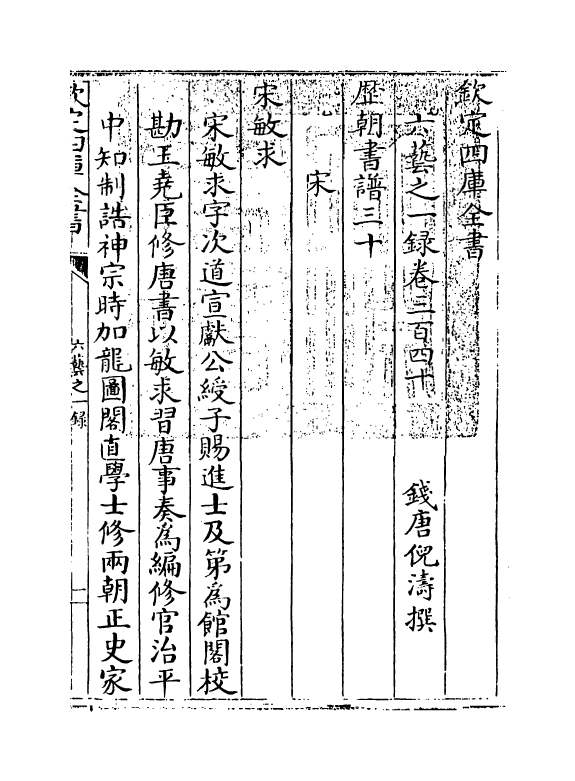 欽定四庫全書
六藝之一録卷三百四十
錢唐倪濤撰
歴朝書譜三十
宋
宋敏求
宋敏求字次道宣獻公綬子賜進士及第為館閣校
勘王堯臣修唐書以敏求習唐事奏為編修官治平
中知制誥神宗時加龍圖閣直學士修兩朝正史家
欽定四庫全書
六藝之一録